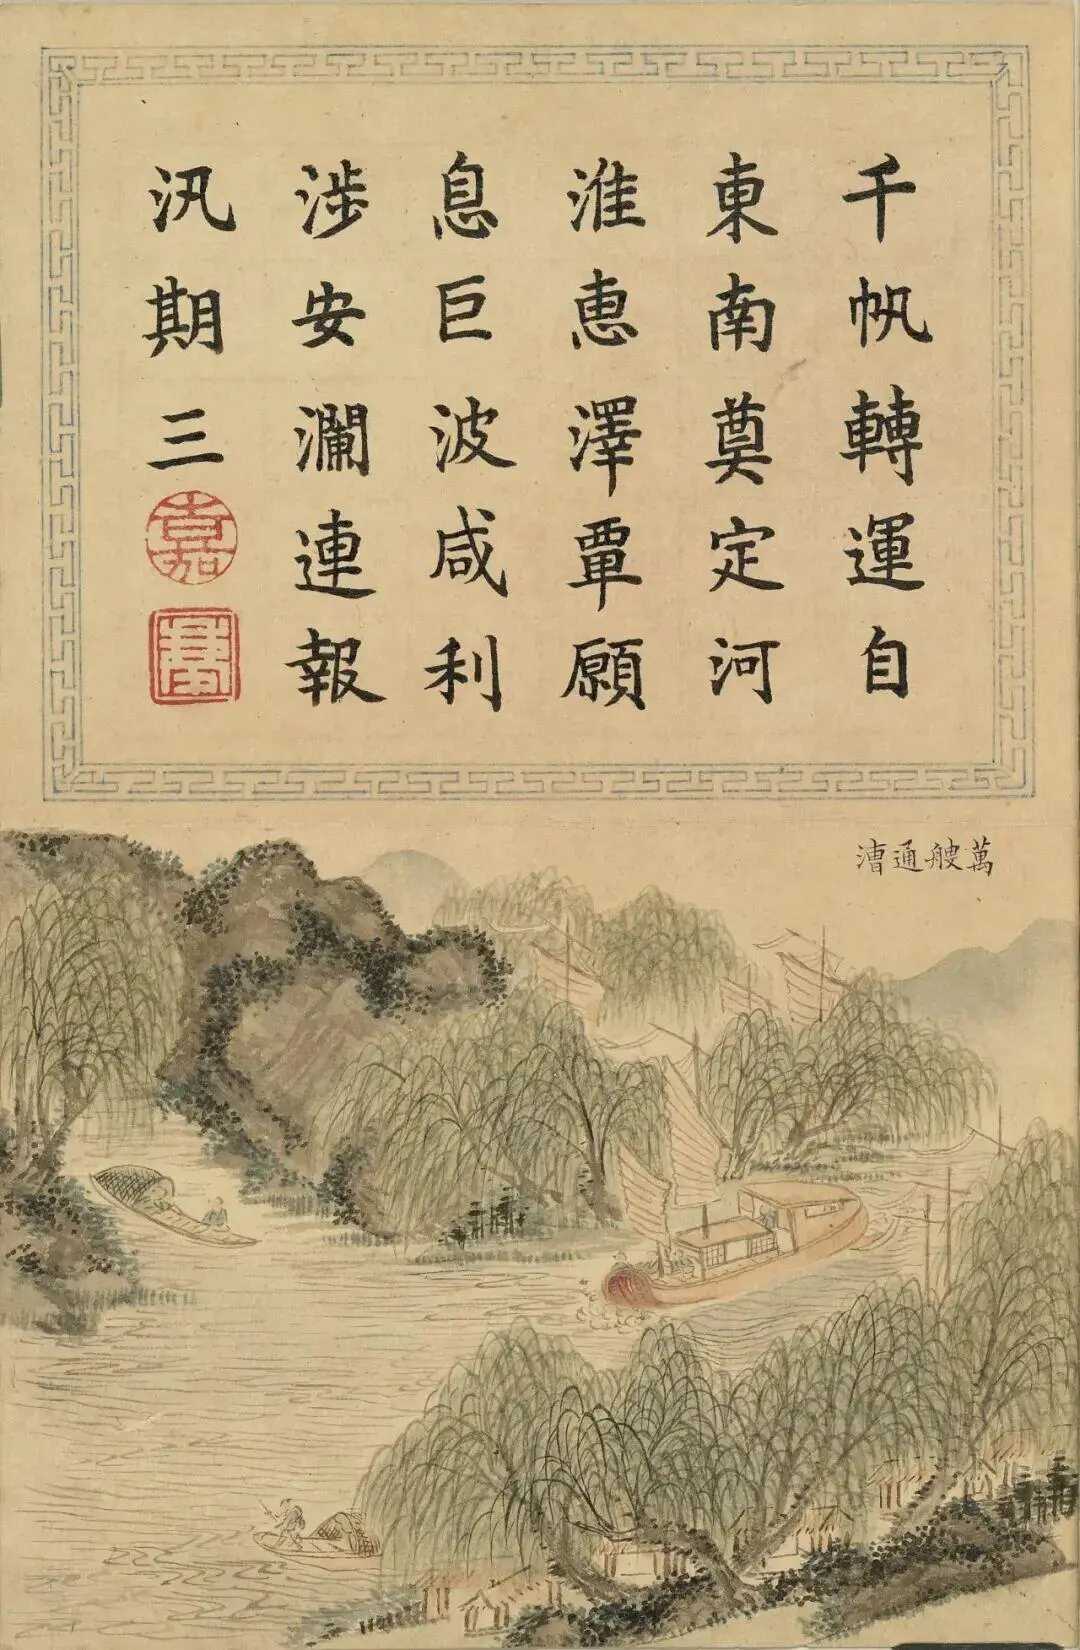 千帆轉運自
東南奠定河
淮惠澤覃願
息巨波咸利
涉安瀾連報
汛期三
嘉
萬艘通漕